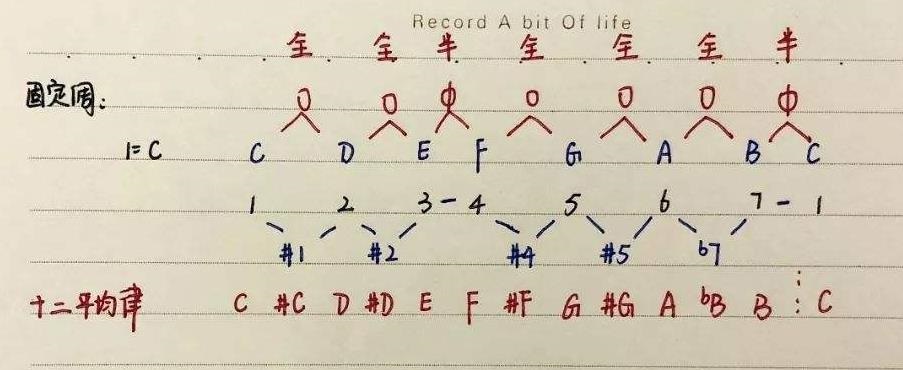 Record A bit Of life
全 全 半 全 全 全 半
固定调:
1=C C D E F G A B C
1 2 3 - 4 5 6 7 - 1
#1 #2 #4 #5 b7
十二平均律 C #C D #D E F #F G #G A bB B ⋮ C